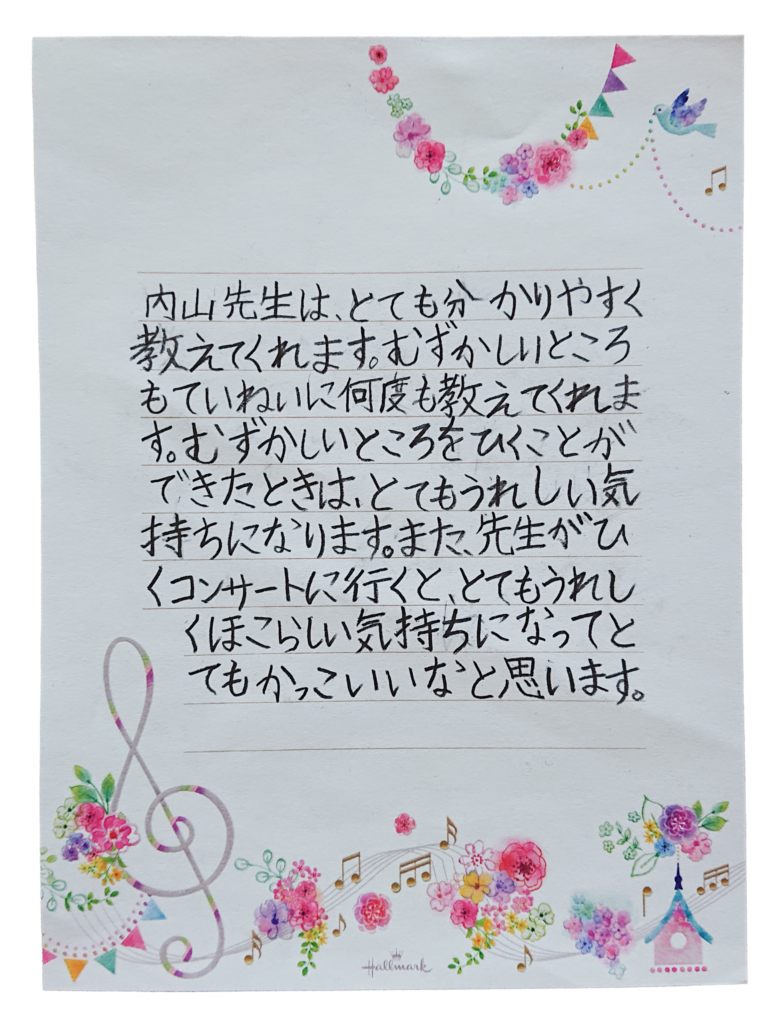 内山先生は、とても分かりやすく
教えてくれます。むずかしいところ
もていねいに何度も教えてくれま
す。むずかしいところをひくことが
できたときは、とてもうれしい気
持ちになります。また、先生がひ
くコンサートに行くと、とてもうれし
くほこらしい気持ちになってと
てもかっこいいなと思います。
Hallmark